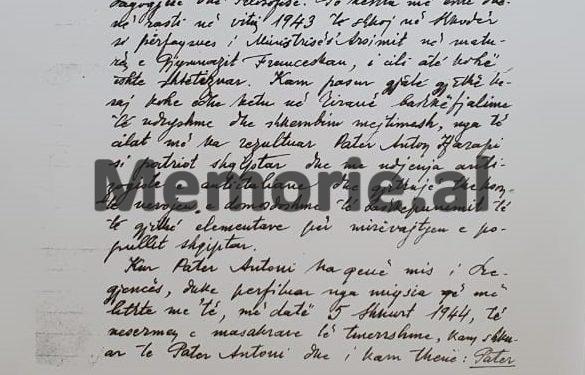 dagogjike dhe filozofike. Po kështu me
në rasti në vitin 1943 të shkoj në Shkodër
si përfaqsues i Ministrisë s'Arsimit në matu-
rën e Gjymnazit Françeskan, i cili atë kohë
ishte shtetëzuar. Kam pasur gjatë gjithë kë-
saj kohe edhe këtu në Tiranë bashkëfjalime
të ndryshme dhe shkëmbim mejtimesh, nga të
cilat më ka rezultuar Pater Anton Harapi
si patriot shqiptar dhe me ndjenja anti-
zogiste, antiitaliane dhe gjithnjë theksonte
nevojën e domosdoshme të bashkëpunimit të
të gjithë elementave për mirëvajtjen e po-
pullit shqiptar.
Memorie.al
Kur Pater Antoni ka qenë mis i Re-
gjencës, duke përfituar nga miqsia që më
lithte me të, më datë 5 Shkurt 1944, të
nesërmen e masakrave të tmerrshme, kam shku-
ar te Pater Antoni dhe i kam thënë: Pater